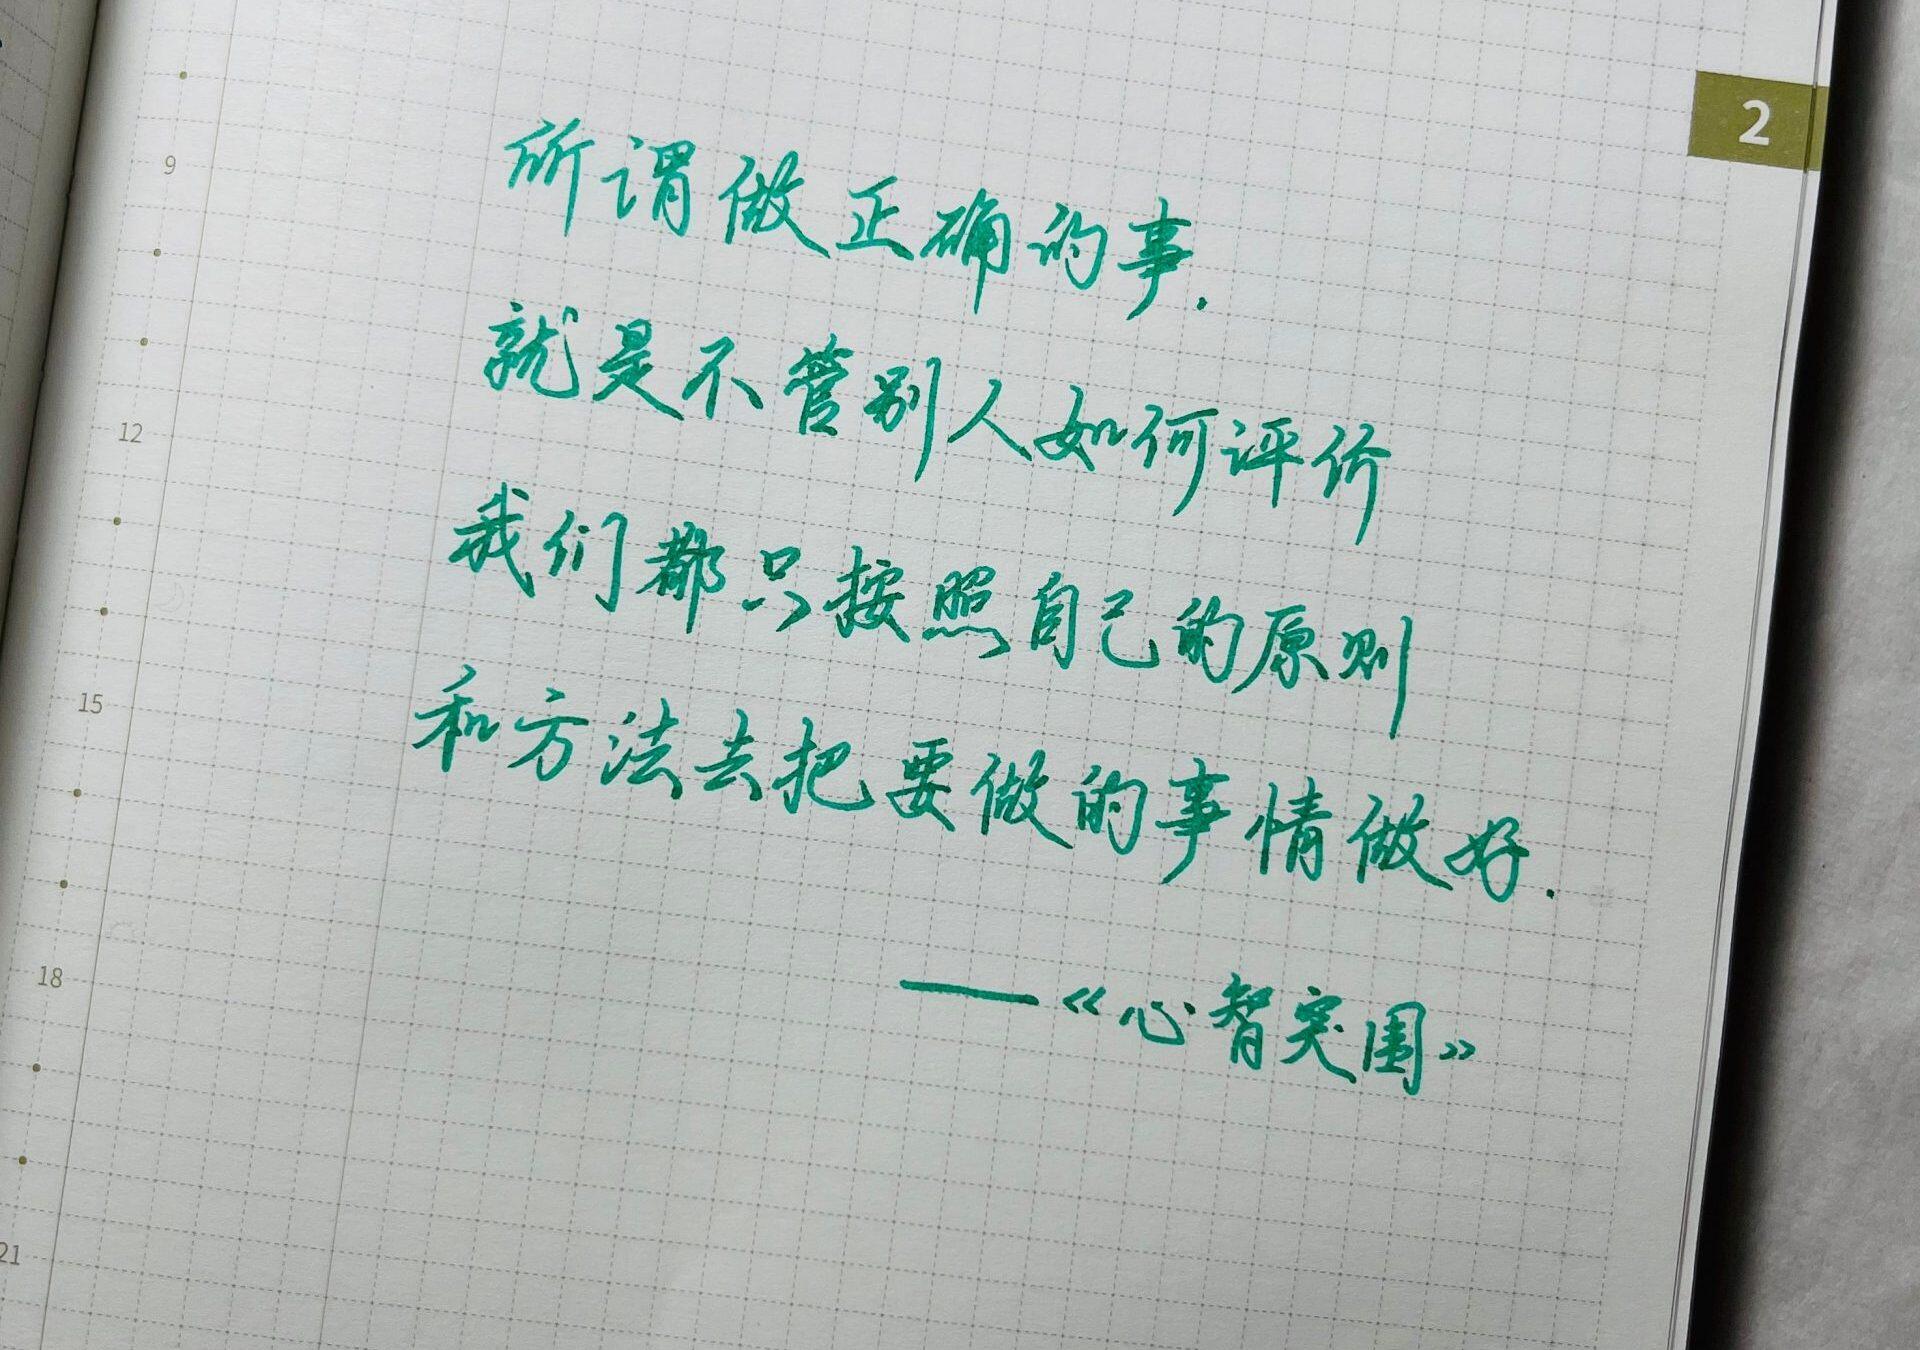 2
9
所谓做正确的事.
就是不管别人如何评价
12
我们都只按照自己的原则
15
和方法去把要做的事情做好.
18
——《心智突围》
21